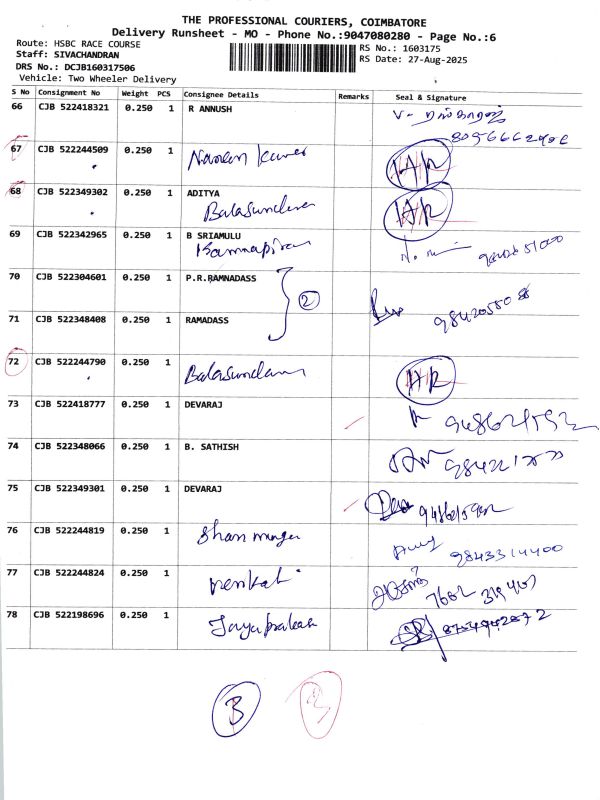 THE PROFESSIONAL COURIERS, COIMBATORE
Delivery Runsheet - MO - Phone No.:9047080280 - Page No.:6
Route: HSBC RACE COURSE
RS No.: 1603175
Staff: SIVACHANDRAN
RS Date: 27-Aug-2025
DRS No.: DCJB160317506
Vehicle: Two Wheeler Delivery
S No Consignment No Weight PCS Consignee Details Remarks Seal & Signature
66 CJB 522418321 0.250 1 R ANNUSH
67 CJB 522244509 0.250 1 Naveen kumar HR
68 CJB 522349302 0.250 1 ADITYA HR
Balasundara
69 CJB 522342965 0.250 1 B SRIAMULU
70 CJB 522304601 0.250 1 P.R.RAMNADASS
2
71 CJB 522348408 0.250 1 RAMADASS
72 CJB 522244790 0.250 1 Balasundaram HR
73 CJB 522418777 0.250 1 DEVARAJ
74 CJB 522348066 0.250 1 B. SATHISH
75 CJB 522349301 0.250 1 DEVARAJ
76 CJB 522244819 0.250 1 Shanmugam
9843314400
77 CJB 522244824 0.250 1 Venkat
78 CJB 522198696 0.250 1 Jayaprakash 8754942872
3 3